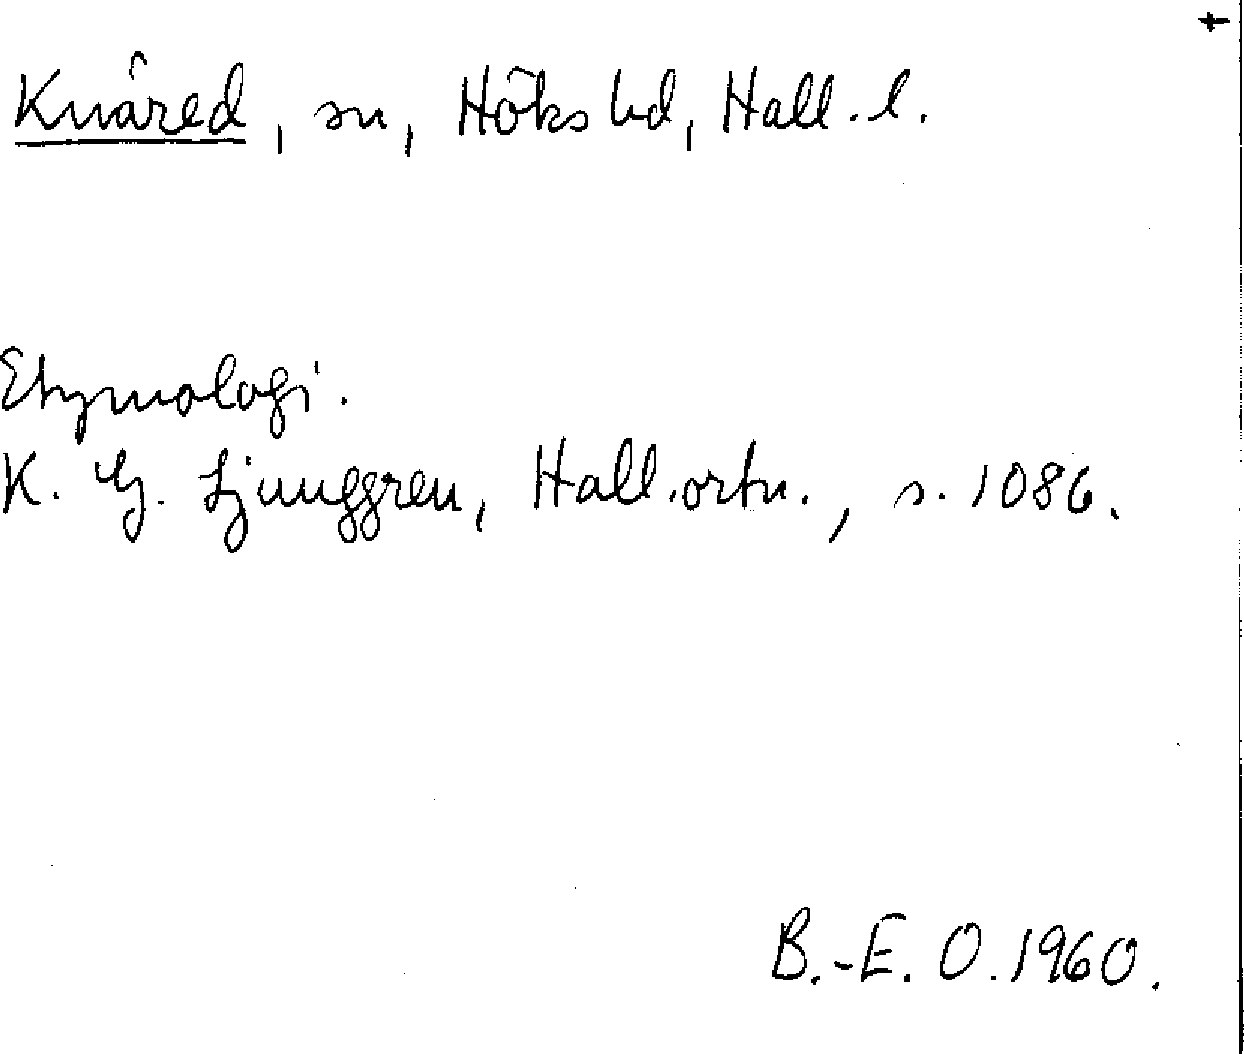 Knäred, sn, Höks hd, Hall. l.
Etymologi.
K. G. Ljunggren, Hall. ortn., s. 1086.
B.-E. O. 1960.